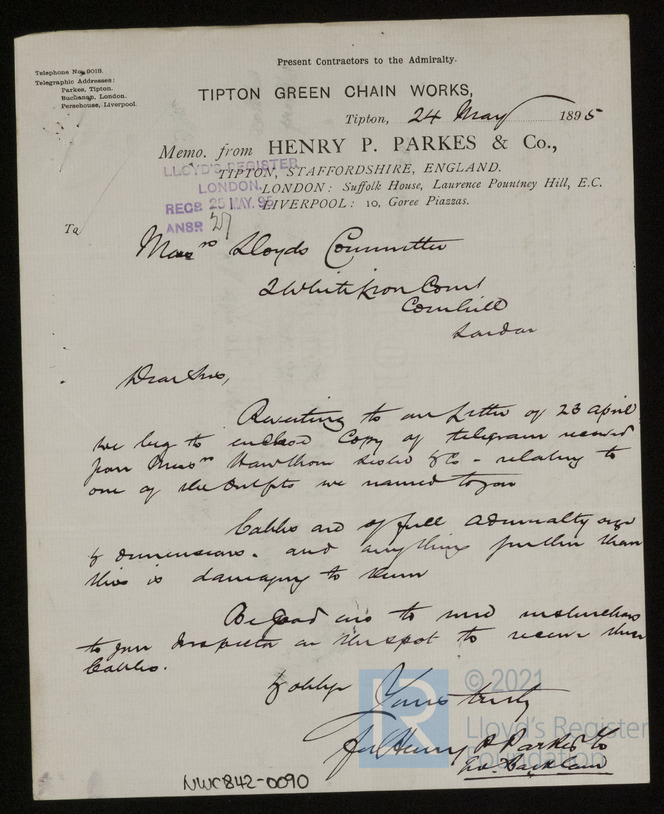 Present Contractors to the Admiralty.
Telephone No. 9018.
Telegraphic Addresses:
Parkes, Tipton.
Buchanan, London.
Persehouse, Liverpool.
TIPTON GREEN CHAIN WORKS,
Tipton, 24 May 1895
Memo. from HENRY P. PARKES & Co.,
TIPTON, STAFFORDSHIRE, ENGLAND.
LONDON: Suffolk House, Laurence Pountney Hill, E.C.
LIVERPOOL: 10, Goree Piazzas.
LLOYD'S REGISTER
LONDON.
RECD 25 MAY. 95
ANSR 27
To
Messrs Lloyds Committee
2 White Lion Court
Cornhill
London
Dear Sirs,
Reverting to our letter of 23 April
we beg to enclose Copy of telegram received
from Messrs Hawthorn Leslie & Co - relating to
one of the outfits we named to you
Cables are of full Admiralty size
& dimensions. and anything further than
this is damaging to them
Be good eno to send instructions
to your Inspector on the spot to receive these
Cables.
& oblige
Yours truly
for Henry P Parkes & Co
NWC842-0090
© 2021
Lloyd's Register
Foundation